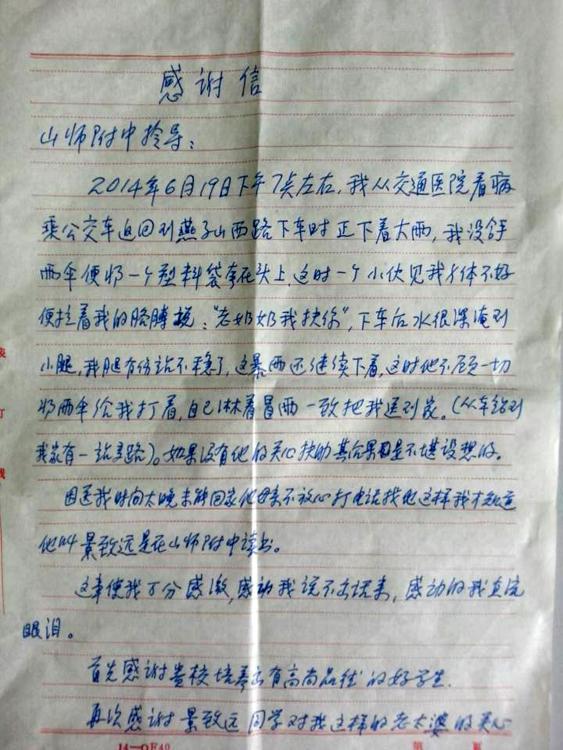 感谢信
山师附中领导：
2014年6月19日下午7点左右，我从交通医院看病
乘公交车返回到燕子山西路下车时正下着大雨，我没带
雨伞便将一个塑料袋拿在头上，这时一个小伙见我身体不好
便拉着我的胳膊说："老奶奶我扶你"，下车后水很深淹到
小腿，我腿有伤站不稳了，这暴雨还继续下着，这时他不顾一切
将雨伞给我打着，自己淋着冒雨一致把我送到家。（从车站到
我家有一站多路）。如果没有他的关心扶助其后果是不堪设想的。
因送我时间太晚未能回家他母亲不放心打电话找他这样我才知道
他叫景致远是在山师附中读书。
这事使我万分感激，感动我说不出话来，感动的我直流
眼泪。
首先感谢贵校培养出有高尚品德的好学生.
再次感谢景致远同学对我这样的老太婆的关心
14—QF40
第